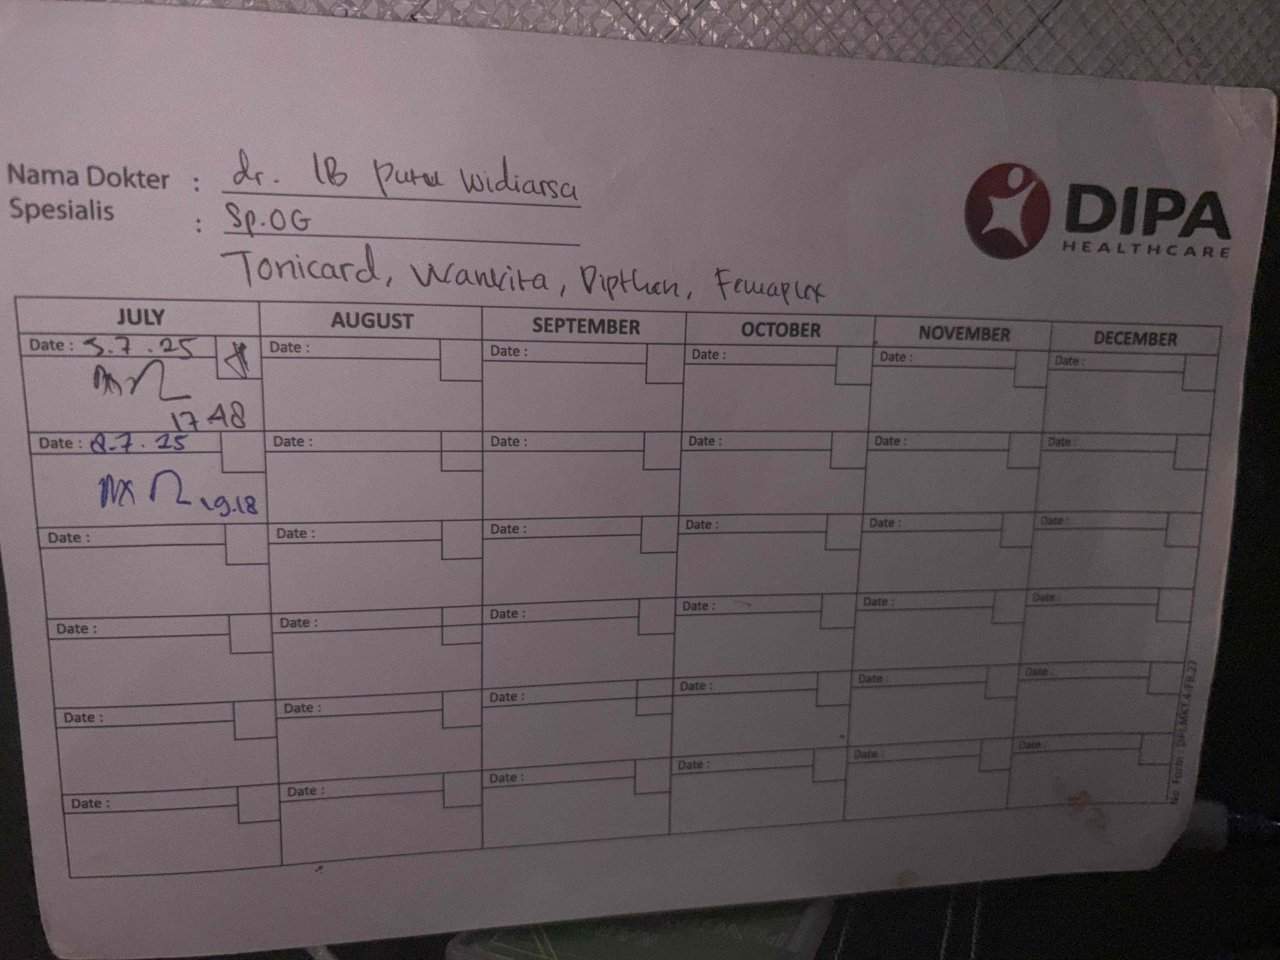 Nama Dokter : dr. IB Putu Widiarsa
Spesialis : Sp.OG
DIPA
HEALTHCARE
Tonicard, Wankita, Dipthen, Femaplex
JULY AUGUST SEPTEMBER OCTOBER NOVEMBER DECEMBER
Date : 5.7.25 Date : Date : Date : Date : Date :
17 48
Date : 8.7.25 Date : Date : Date : Date : Date :
19.18
Date : Date : Date : Date : Date : Date :
Date : Date : Date : Date : Date : Date :
Date : Date : Date : Date : Date : Date :
Date : Date : Date : Date : Date : Date :
No Form :